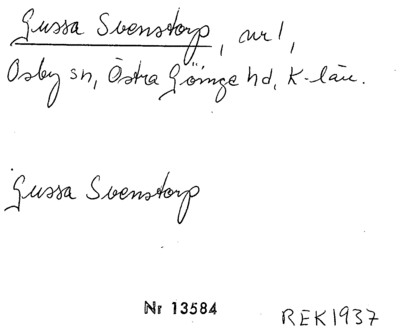 Gussa Svenstorp, nr 1,
Osby sn, Östra Göinge hd, K-län.
Gussa Svenstorp
Nr 13584
REK1937